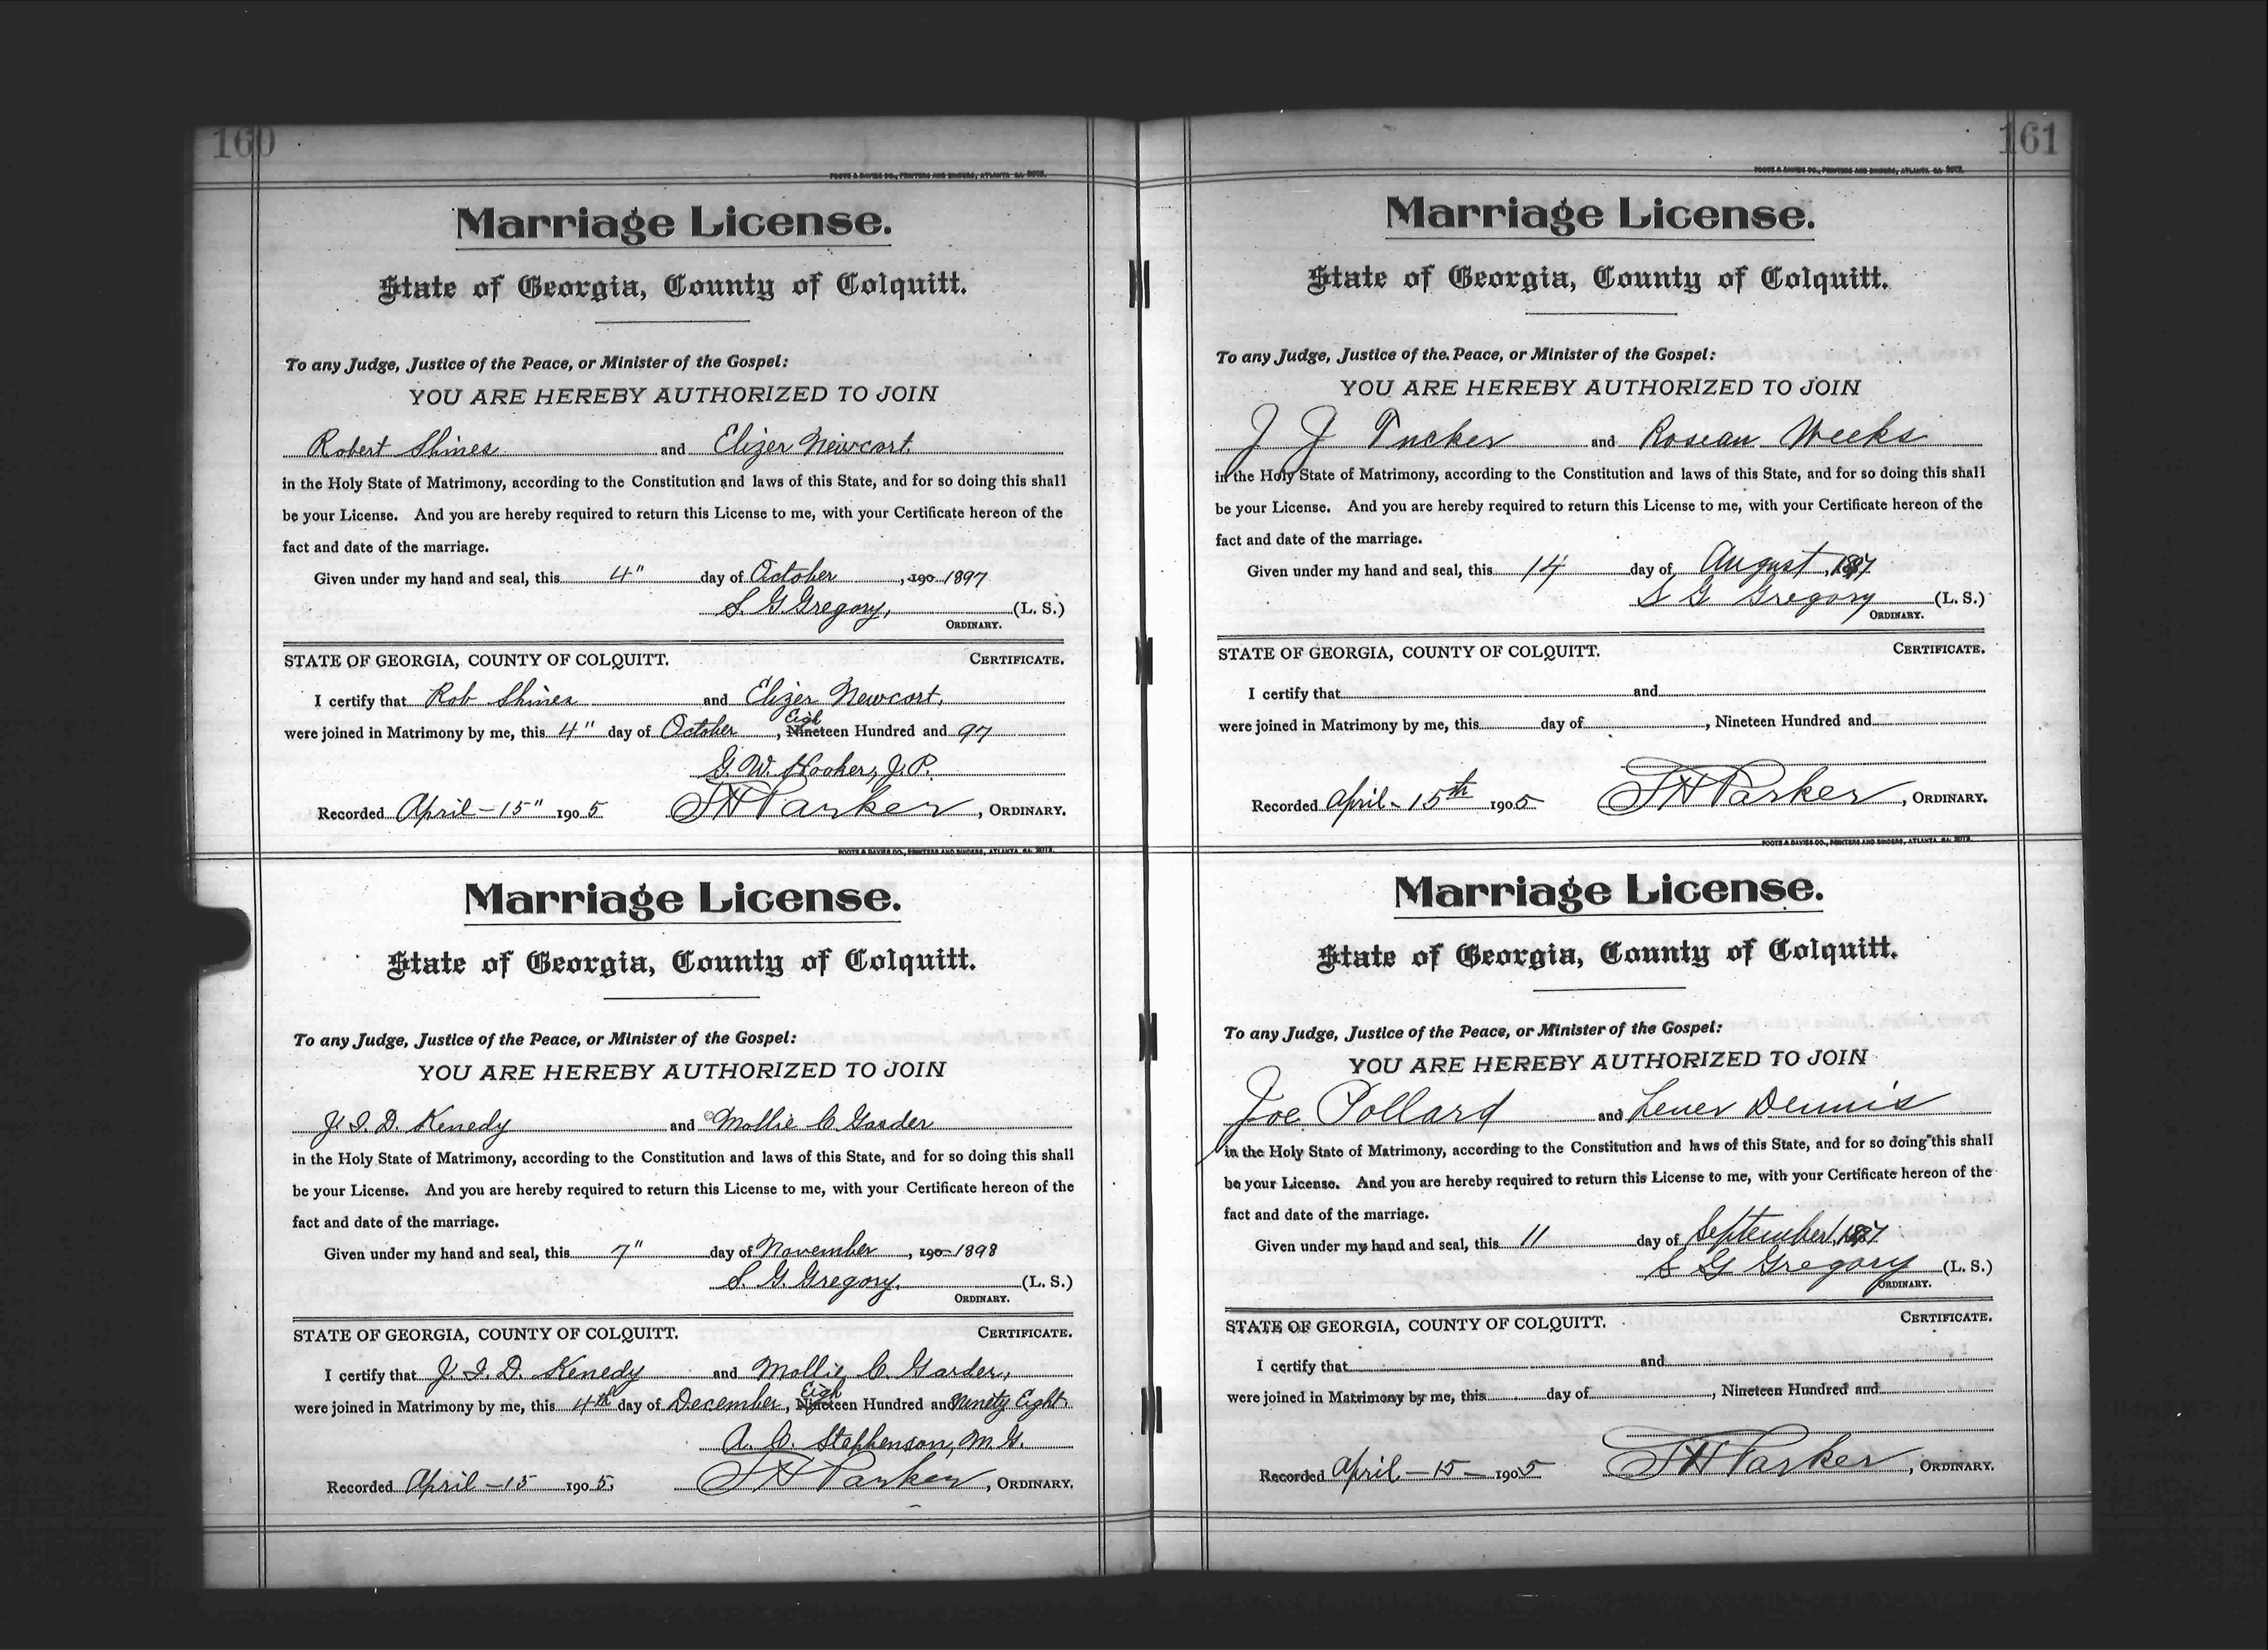 160
FOOTE & DAVIES CO., PRINTERS AND BINDERS, ATLANTA GA.
Marriage License.
State of Georgia, County of Colquitt.
To any Judge, Justice of the Peace, or Minister of the Gospel:
YOU ARE HEREBY AUTHORIZED TO JOIN
Robert Shines and Elizer Newcort.
in the Holy State of Matrimony, according to the Constitution and laws of this State, and for so doing this shall
be your License. And you are hereby required to return this License to me, with your Certificate hereon of the
fact and date of the marriage.
Given under my hand and seal, this 4" day of October, 190 1897
S. G. Gregory, (L. S.)
ORDINARY.
STATE OF GEORGIA, COUNTY OF COLQUITT. CERTIFICATE.
I certify that Rob Shines and Elizer Newcort,
Eigh
were joined in Matrimony by me, this 4" day of October, Nineteen Hundred and 97
G. W. Hooker, J. P.
Recorded April - 15" 1905 T H Parker, ORDINARY.
FOOTE & DAVIES CO., PRINTERS AND BINDERS, ATLANTA GA.
Marriage License.
State of Georgia, County of Colquitt.
To any Judge, Justice of the Peace, or Minister of the Gospel:
YOU ARE HEREBY AUTHORIZED TO JOIN
J. I. D. Kenedy and Mollie C Garder
in the Holy State of Matrimony, according to the Constitution and laws of this State, and for so doing this shall
be your License. And you are hereby required to return this License to me, with your Certificate hereon of the
fact and date of the marriage.
Given under my hand and seal, this 7" day of November, 190 1898
S. G. Gregory. (L. S.)
ORDINARY.
STATE OF GEORGIA, COUNTY OF COLQUITT. CERTIFICATE.
I certify that J. I. D. Kenedy and Mollie C. Garder,
Eigh
were joined in Matrimony by me, this 4th day of December, Nineteen Hundred and Ninety Eight.
A. C. Stephenson, M. G.
Recorded April - 15 1905. T H Parker, ORDINARY.
161
FOOTE & DAVIES CO., PRINTERS AND BINDERS, ATLANTA GA.
Marriage License.
State of Georgia, County of Colquitt.
To any Judge, Justice of the Peace, or Minister of the Gospel:
YOU ARE HEREBY AUTHORIZED TO JOIN
J J Tucker and Rosean Weeks
in the Holy State of Matrimony, according to the Constitution and laws of this State, and for so doing this shall
be your License. And you are hereby required to return this License to me, with your Certificate hereon of the
fact and date of the marriage.
Given under my hand and seal, this 14 day of August, 1897
S G Gregory (L. S.)
ORDINARY.
STATE OF GEORGIA, COUNTY OF COLQUITT. CERTIFICATE.
I certify that and
were joined in Matrimony by me, this day of , Nineteen Hundred and
Recorded April - 15th 1905 T H Parker, ORDINARY.
FOOTE & DAVIES CO., PRINTERS AND BINDERS, ATLANTA GA.
Marriage License.
State of Georgia, County of Colquitt.
To any Judge, Justice of the Peace, or Minister of the Gospel:
YOU ARE HEREBY AUTHORIZED TO JOIN
Joe Pollard and Lener Dennis
in the Holy State of Matrimony, according to the Constitution and laws of this State, and for so doing this shall
be your License. And you are hereby required to return this License to me, with your Certificate hereon of the
fact and date of the marriage.
Given under my hand and seal, this 11 day of September, 1897
S G Gregory (L. S.)
ORDINARY.
STATE OF GEORGIA, COUNTY OF COLQUITT. CERTIFICATE.
I certify that and
were joined in Matrimony by me, this day of , Nineteen Hundred and
Recorded April - 15 - 1905 T H Parker, ORDINARY.